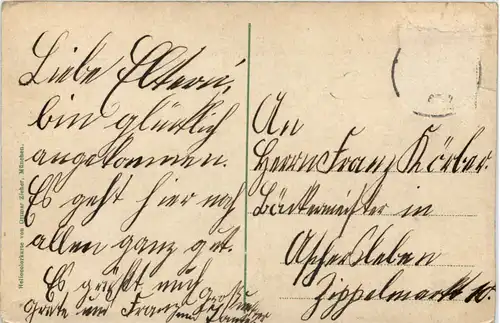 Liebe Eltern!
bin glücklich
angekommen.
Es geht hier noch
allen ganz gut.
Es grüßt euch
Grete und Franz
An
Herrn Franz Körber.
Bäckermeister in
Aschersleben
Zippelmarkt 10.
Reliefpostkarte von Ottmar Zieher, München.